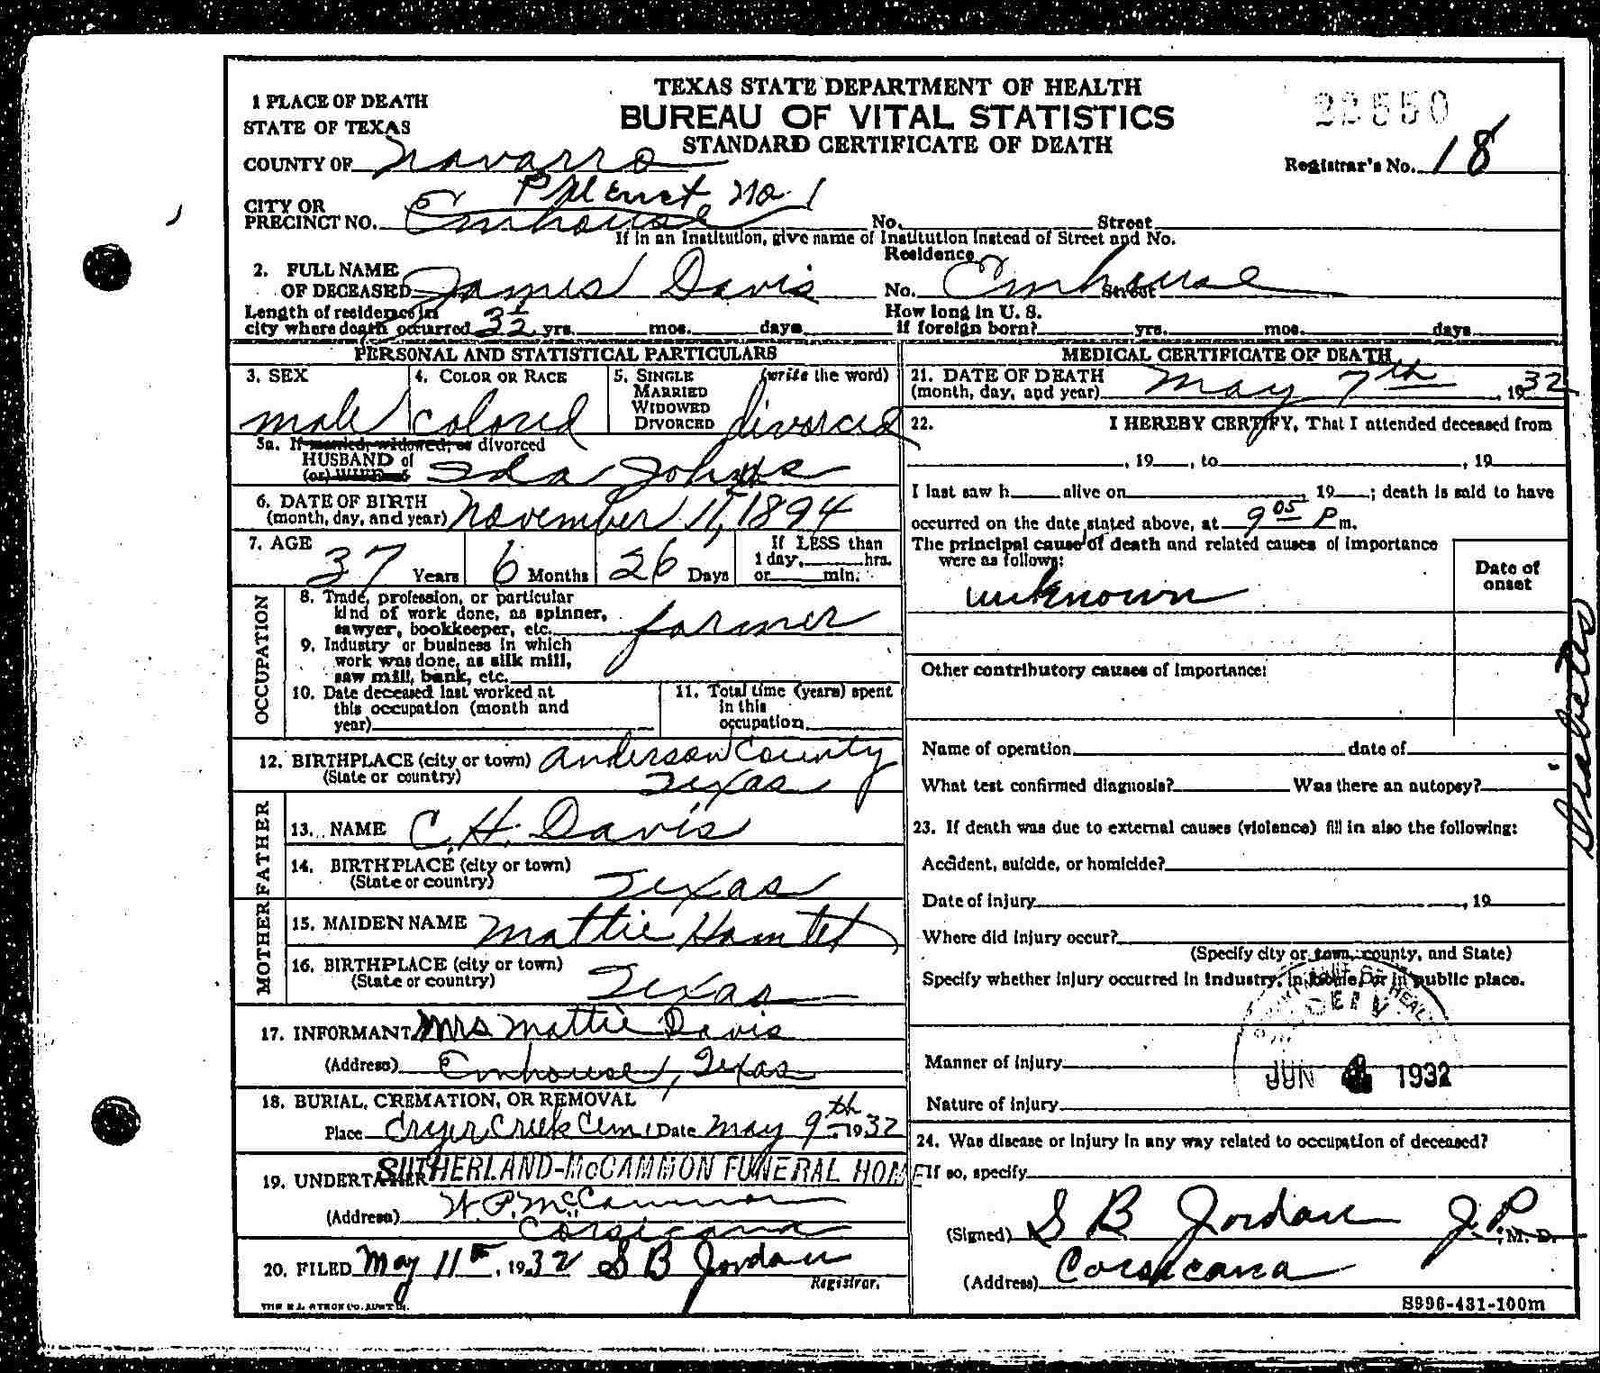 TEXAS STATE DEPARTMENT OF HEALTH
BUREAU OF VITAL STATISTICS
STANDARD CERTIFICATE OF DEATH
22550
Registrar's No. 18
1 PLACE OF DEATH
STATE OF TEXAS
COUNTY OF Navarro
Precinct No. 1
CITY OR
PRECINCT NO. Emhouse No. Street
If in an Institution, give name of Institution instead of Street and No.
2. FULL NAME
OF DECEASED James Davis
Residence
No. Emhouse Street
Length of residence in
city where death occurred 32 yrs. mos. days
How long in U. S.
if foreign born? yrs. mos. days
PERSONAL AND STATISTICAL PARTICULARS
3. SEX
male
4. COLOR OR RACE
colored
5. SINGLE
MARRIED
WIDOWED
DIVORCED
(write the word)
divorced
5a. If married, widowed, or divorced
HUSBAND of
(or) WIFE of
Ida
6. DATE OF BIRTH
(month, day, and year) November 11, 1894
7. AGE
37 Years 6 Months 26 Days
If LESS than
1 day, hrs.
or min.
OCCUPATION
8. Trade, profession, or particular
kind of work done, as spinner,
sawyer, bookkeeper, etc. farmer
9. Industry or business in which
work was done, as silk mill,
saw mill, bank, etc.
10. Date deceased last worked at
this occupation (month and
year)
11. Total time (years) spent
in this
occupation
12. BIRTHPLACE (city or town) Anderson County
(State or country) Texas
FATHER
13. NAME C. H. Davis
14. BIRTHPLACE (city or town)
(State or country) Texas
MOTHER
15. MAIDEN NAME Mattie
16. BIRTHPLACE (city or town)
(State or country) Texas
17. INFORMANT Mrs Mattie Davis
(Address) Emhouse, Texas
18. BURIAL, CREMATION, OR REMOVAL
Place Cryer Creek Cem Date May 9th 1932
19. UNDERTAKER SUTHERLAND-McCAMMON FUNERAL HOME
W. P. McCammon
(Address) Corsicana
20. FILED May 11th, 1932 S B Jordan
Registrar.
THE E.L. STECK CO. AUSTIN.
MEDICAL CERTIFICATE OF DEATH
21. DATE OF DEATH
(month, day, and year) May 7th, 1932
22. I HEREBY CERTIFY, That I attended deceased from
, 19 , to , 19
I last saw h alive on , 19 ; death is said to have
occurred on the date stated above, at 9 05 P m.
The principal cause of death and related causes of importance
were as follows:
Date of
onset
unknown
Other contributory causes of importance:
Diabetes
Name of operation date of
What test confirmed diagnosis? Was there an autopsy?
23. If death was due to external causes (violence) fill in also the following:
Accident, suicide, or homicide?
Date of injury , 19
Where did injury occur?
(Specify city or town, county, and State)
Specify whether injury occurred in industry, in home, or in public place.
JUN 4 1932
Manner of injury
Nature of injury
24. Was disease or injury in any way related to occupation of deceased?
If so, specify
(Signed) S B Jordan J. P. , M. D.
(Address) Corsicana
S996-431-100m